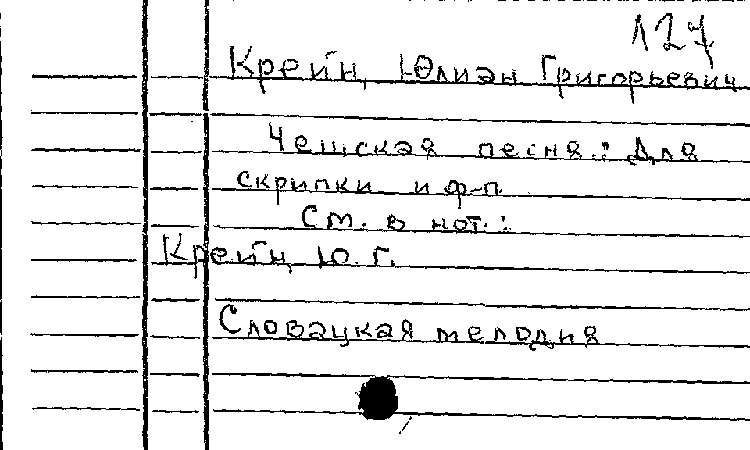 127
Крейн, Юлиан Григорьевич
Чешская песня.: Для
скрипки и ф-п
См. в нот.:
Крейн, Ю. Г.
Словацкая мелодия